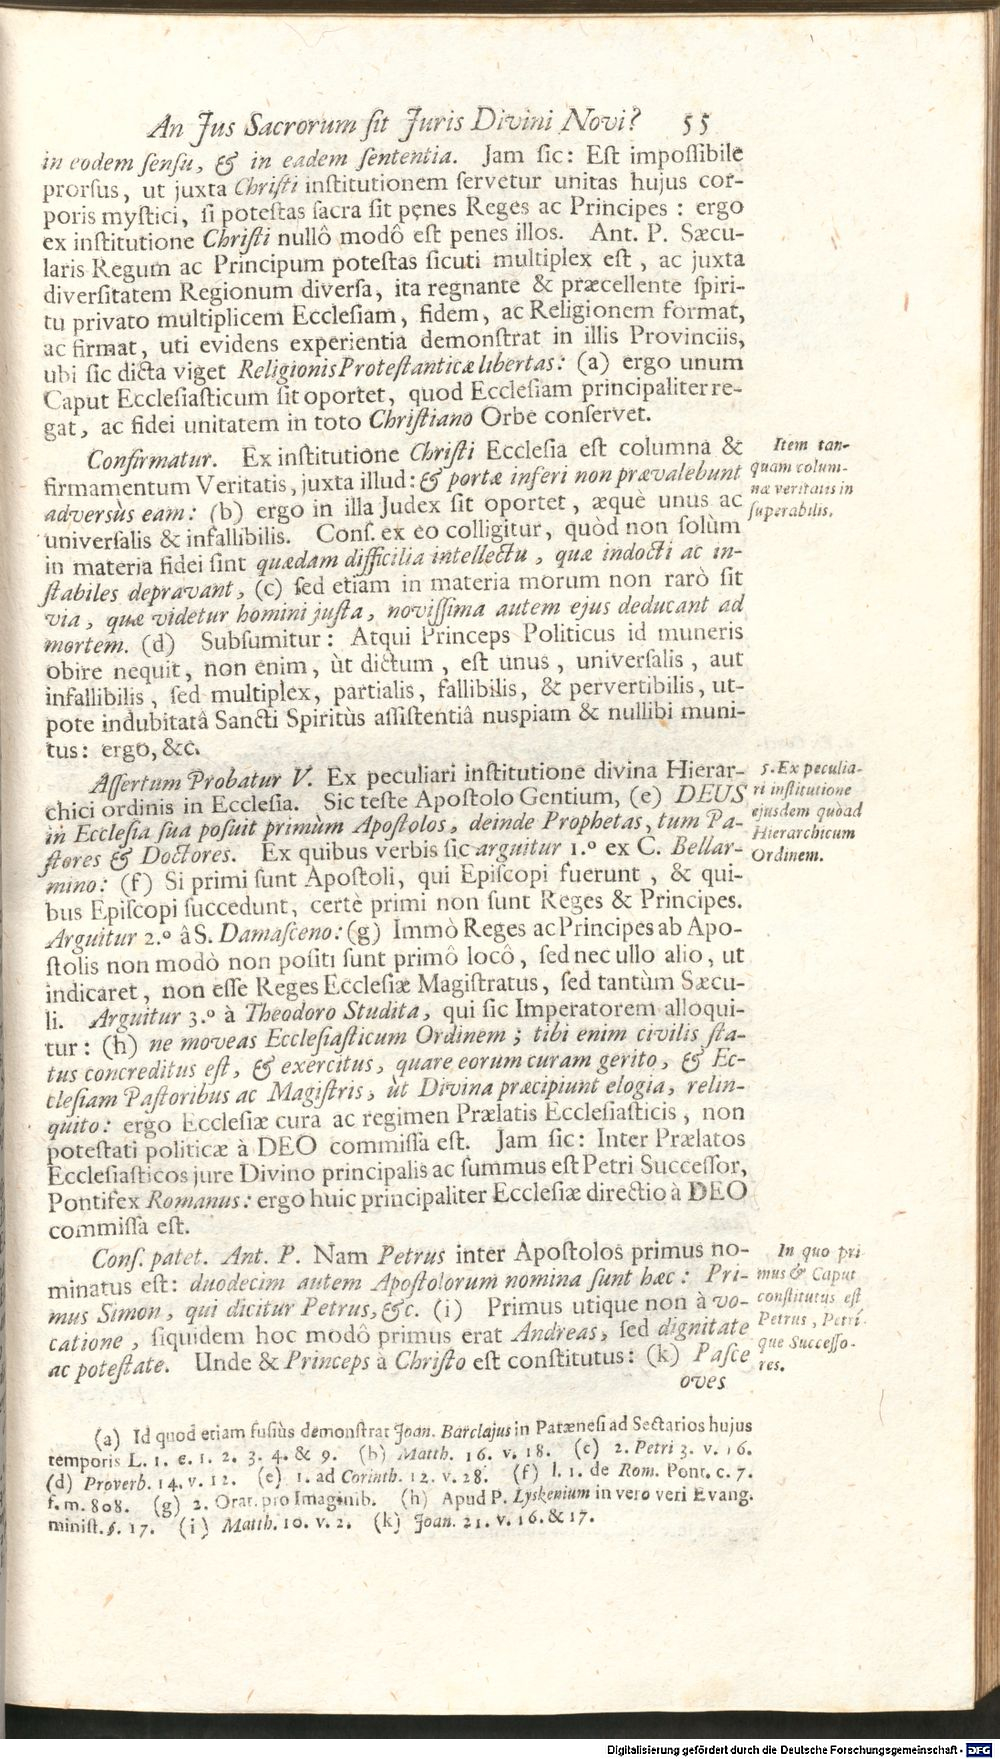 An Jus Sacrorum sit Juris Divini Novi? 55
in eodem sensu, & in eadem sententia. Jam sic: Est impossibile
prorsus, ut juxta Christi institutionem servetur unitas hujus cor-
poris mystici, si potestas sacra sit penes Reges ac Principes: ergo
ex institutione Christi nullô modô est penes illos. Ant. P. Sæcu-
laris Regum ac Principum potestas sicuti multiplex est, ac juxta
diversitatem Regionum diversa, ita regnante & præcellente spiri-
tu privato multiplicem Ecclesiam, fidem, ac Religionem format,
ac firmat, uti evidens experientia demonstrat in illis Provinciis,
ubi sic dicta viget Religionis Protestanticæ libertas: (a) ergo unum
Caput Ecclesiasticum sit oportet, quod Ecclesiam principaliter re-
gat, ac fidei unitatem in toto Christiano Orbe conservet.
Confirmatur. Ex institutione Christi Ecclesia est columna &
firmamentum Veritatis, juxta illud: & portæ inferi non prævalebunt
adversùs eam: (b) ergo in illa Judex sit oportet, æquè unus ac
universalis & infallibilis. Cons. ex eo colligitur, quòd non solùm
in materia fidei sint quædam difficilia intellectu, quæ indocti ac in-
stabiles depravant, (c) sed etiam in materia morum non rarò sit
via, quæ videtur homini justa, novissima autem ejus deducant ad
mortem. (d) Subsumitur: Atqui Princeps Politicus id muneris
obire nequit, non enim, ùt dictum, est unus, universalis, aut
infallibilis, sed multiplex, partialis, fallibilis, & pervertibilis, ut-
pote indubitatâ Sancti Spiritùs assistentiâ nuspiam & nullibi muni-
tus: ergo, &c.
Item tan-
quam colum-
næ veritatis in
superabilis.
Assertum Probatur V. Ex peculiari institutione divina Hierar-
chici ordinis in Ecclesia. Sic teste Apostolo Gentium, (e) DEUS
in Ecclesia sua posuit primùm Apostolos, deinde Prophetas, tum Pa-
stores & Doctores. Ex quibus verbis sic arguitur 1.º ex C. Bellar-
mino: (f) Si primi sunt Apostoli, qui Episcopi fuerunt, & qui-
bus Episcopi succedunt, certè primi non sunt Reges & Principes.
Arguitur 2.º â S. Damasceno: (g) Immò Reges ac Principes ab Apo-
stolis non modò non positi sunt primô locô, sed nec ullo alio, ut
indicaret, non esse Reges Ecclesiæ Magistratus, sed tantùm Sæcu-
li. Arguitur 3.º à Theodoro Studita, qui sic Imperatorem alloqui-
tur: (h) ne moveas Ecclesiasticum Ordinem; tibi enim civilis sta-
tus concreditus est, & exercitus, quare eorum curam gerito, & Ec-
clesiam Pastoribus ac Magistris, ùt Divina præcipiunt elogia, relin-
quito: ergo Ecclesiæ cura ac regimen Prælatis Ecclesiasticis, non
potestati politicæ à DEO commissa est. Jam sic: Inter Prælatos
Ecclesiasticos jure Divino principalis ac summus est Petri Successor,
Pontifex Romanus: ergo huic principaliter Ecclesiæ directio à DEO
commissa est.
5. Ex peculia-
ri institutione
ejusdem quòad
Hierarchicum
Ordinem.
Cons. patet. Ant. P. Nam Petrus inter Apostolos primus no-
minatus est: duodecim autem Apostolorum nomina sunt hæc: Pri-
mus Simon, qui dicitur Petrus, &c. (i) Primus utique non à vo-
catione, siquidem hoc modô primus erat Andreas, sed dignitate
ac potestate. Unde & Princeps à Christo est constitutus: (k) Pasce
oves
In quo pri
mus & Caput
constitutus est
Petrus, Petri-
que Successo-
res.
(a) Id quod etiam fusiùs demonstrat Joan. Barclajus in Parænesi ad Sectarios hujus
temporis L. 1. c. 1. 2. 3. 4. & 9. (b) Matth. 16. v. 18. (c) 2. Petri 3. v. 16.
(d) Proverb. 14. v. 12. (e) 1. ad Corinth. 12. v. 28. (f) l. 1. de Rom. Pont. c. 7.
f. m. 808. (g) 2. Orat. pro Imaginib. (h) Apud P. Lyskenium in vero veri Evang.
minist. §. 17. (i) Matth. 10. v. 2. (k) Joan. 21. v. 16. & 17.
Digitalisierung gefördert durch die Deutsche Forschungsgemeinschaft - DFG